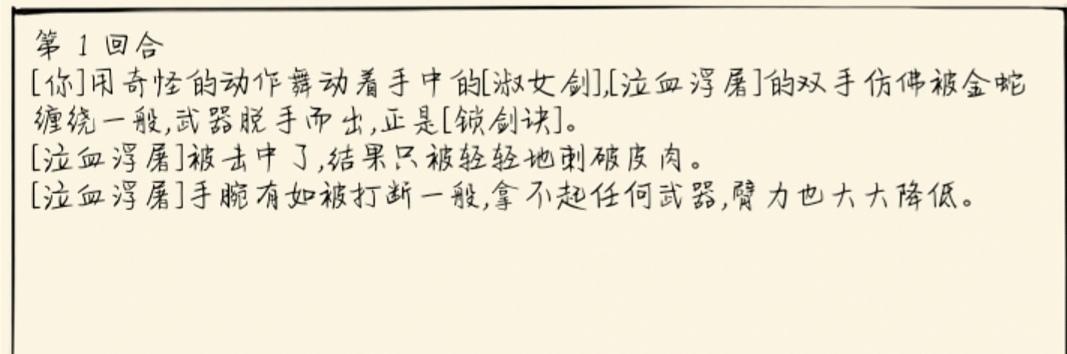 第 1 回合
[你]用奇怪的动作舞动着手中的[淑女剑],[泣血浮屠]的双手仿佛被金蛇
缠绕一般,武器脱手而出,正是[锁剑诀]。
[泣血浮屠]被击中了,结果只被轻轻地刺破皮肉。
[泣血浮屠]手腕有如被打断一般,拿不起任何武器,臂力也大大降低。